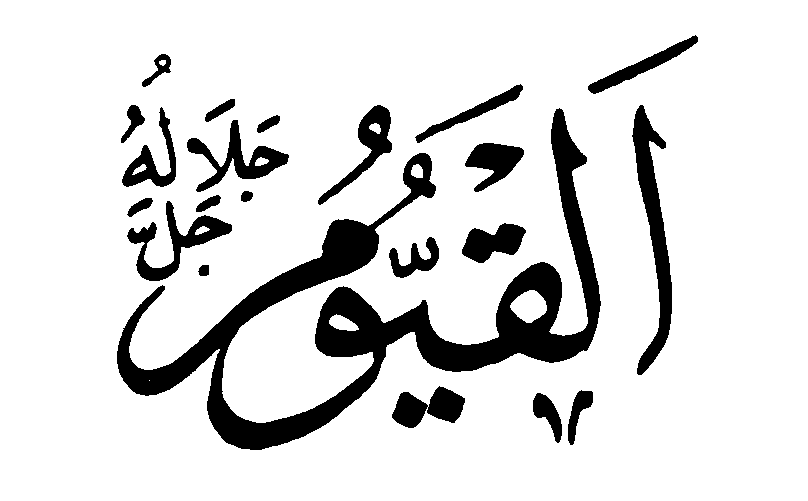 اَلْقَيُّومُ
جَلَّ
جَلَالُهُ